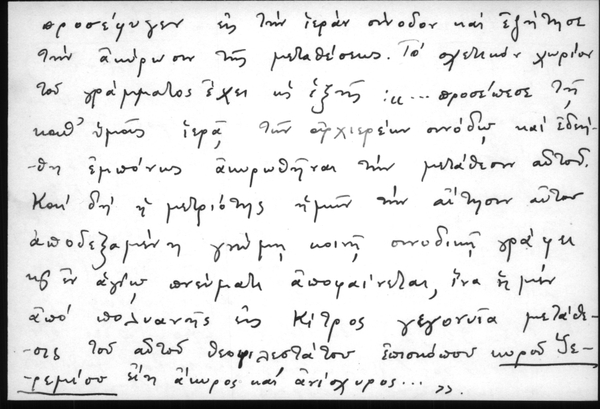 προσέφυγεν εἰς τὴν ἱερὰν σύνοδον καὶ ἐζήτησε
τὴν ἀκύρωσιν τῆς μεταθέσεως. Τὸ σχετικὸν χωρίον
τοῦ γράμματος ἔχει ὡς ἑξῆς : «... προσέπεσε τῇ
καθ' ἡμᾶς ἱερᾷ τῶν ἀρχιερέων συνόδῳ καὶ ἐδεή-
θη ἐμπόνως ἀκυρωθῆναι τὴν μετάθεσιν αὐτοῦ.
Καὶ δὴ ἡ μετριότης ἡμῶν τὴν αἴτησιν αὐτοῦ
ἀποδεξαμένη γνώμῃ κοινῇ συνοδικῇ γράφει
καὶ ἐν ἁγίῳ πνεύματι ἀποφαίνεται, ἵνα ἡ μὲν
ἀπὸ Πολυανῆς εἰς Κίτρος γεγονυῖα μετάθε-
-σις τοῦ αὐτοῦ θεοφιλεστάτου ἐπισκόπου κυροῦ Ἱε-
-ρεμίου εἴη ἄκυρος καὶ ἀνίσχυρος... »